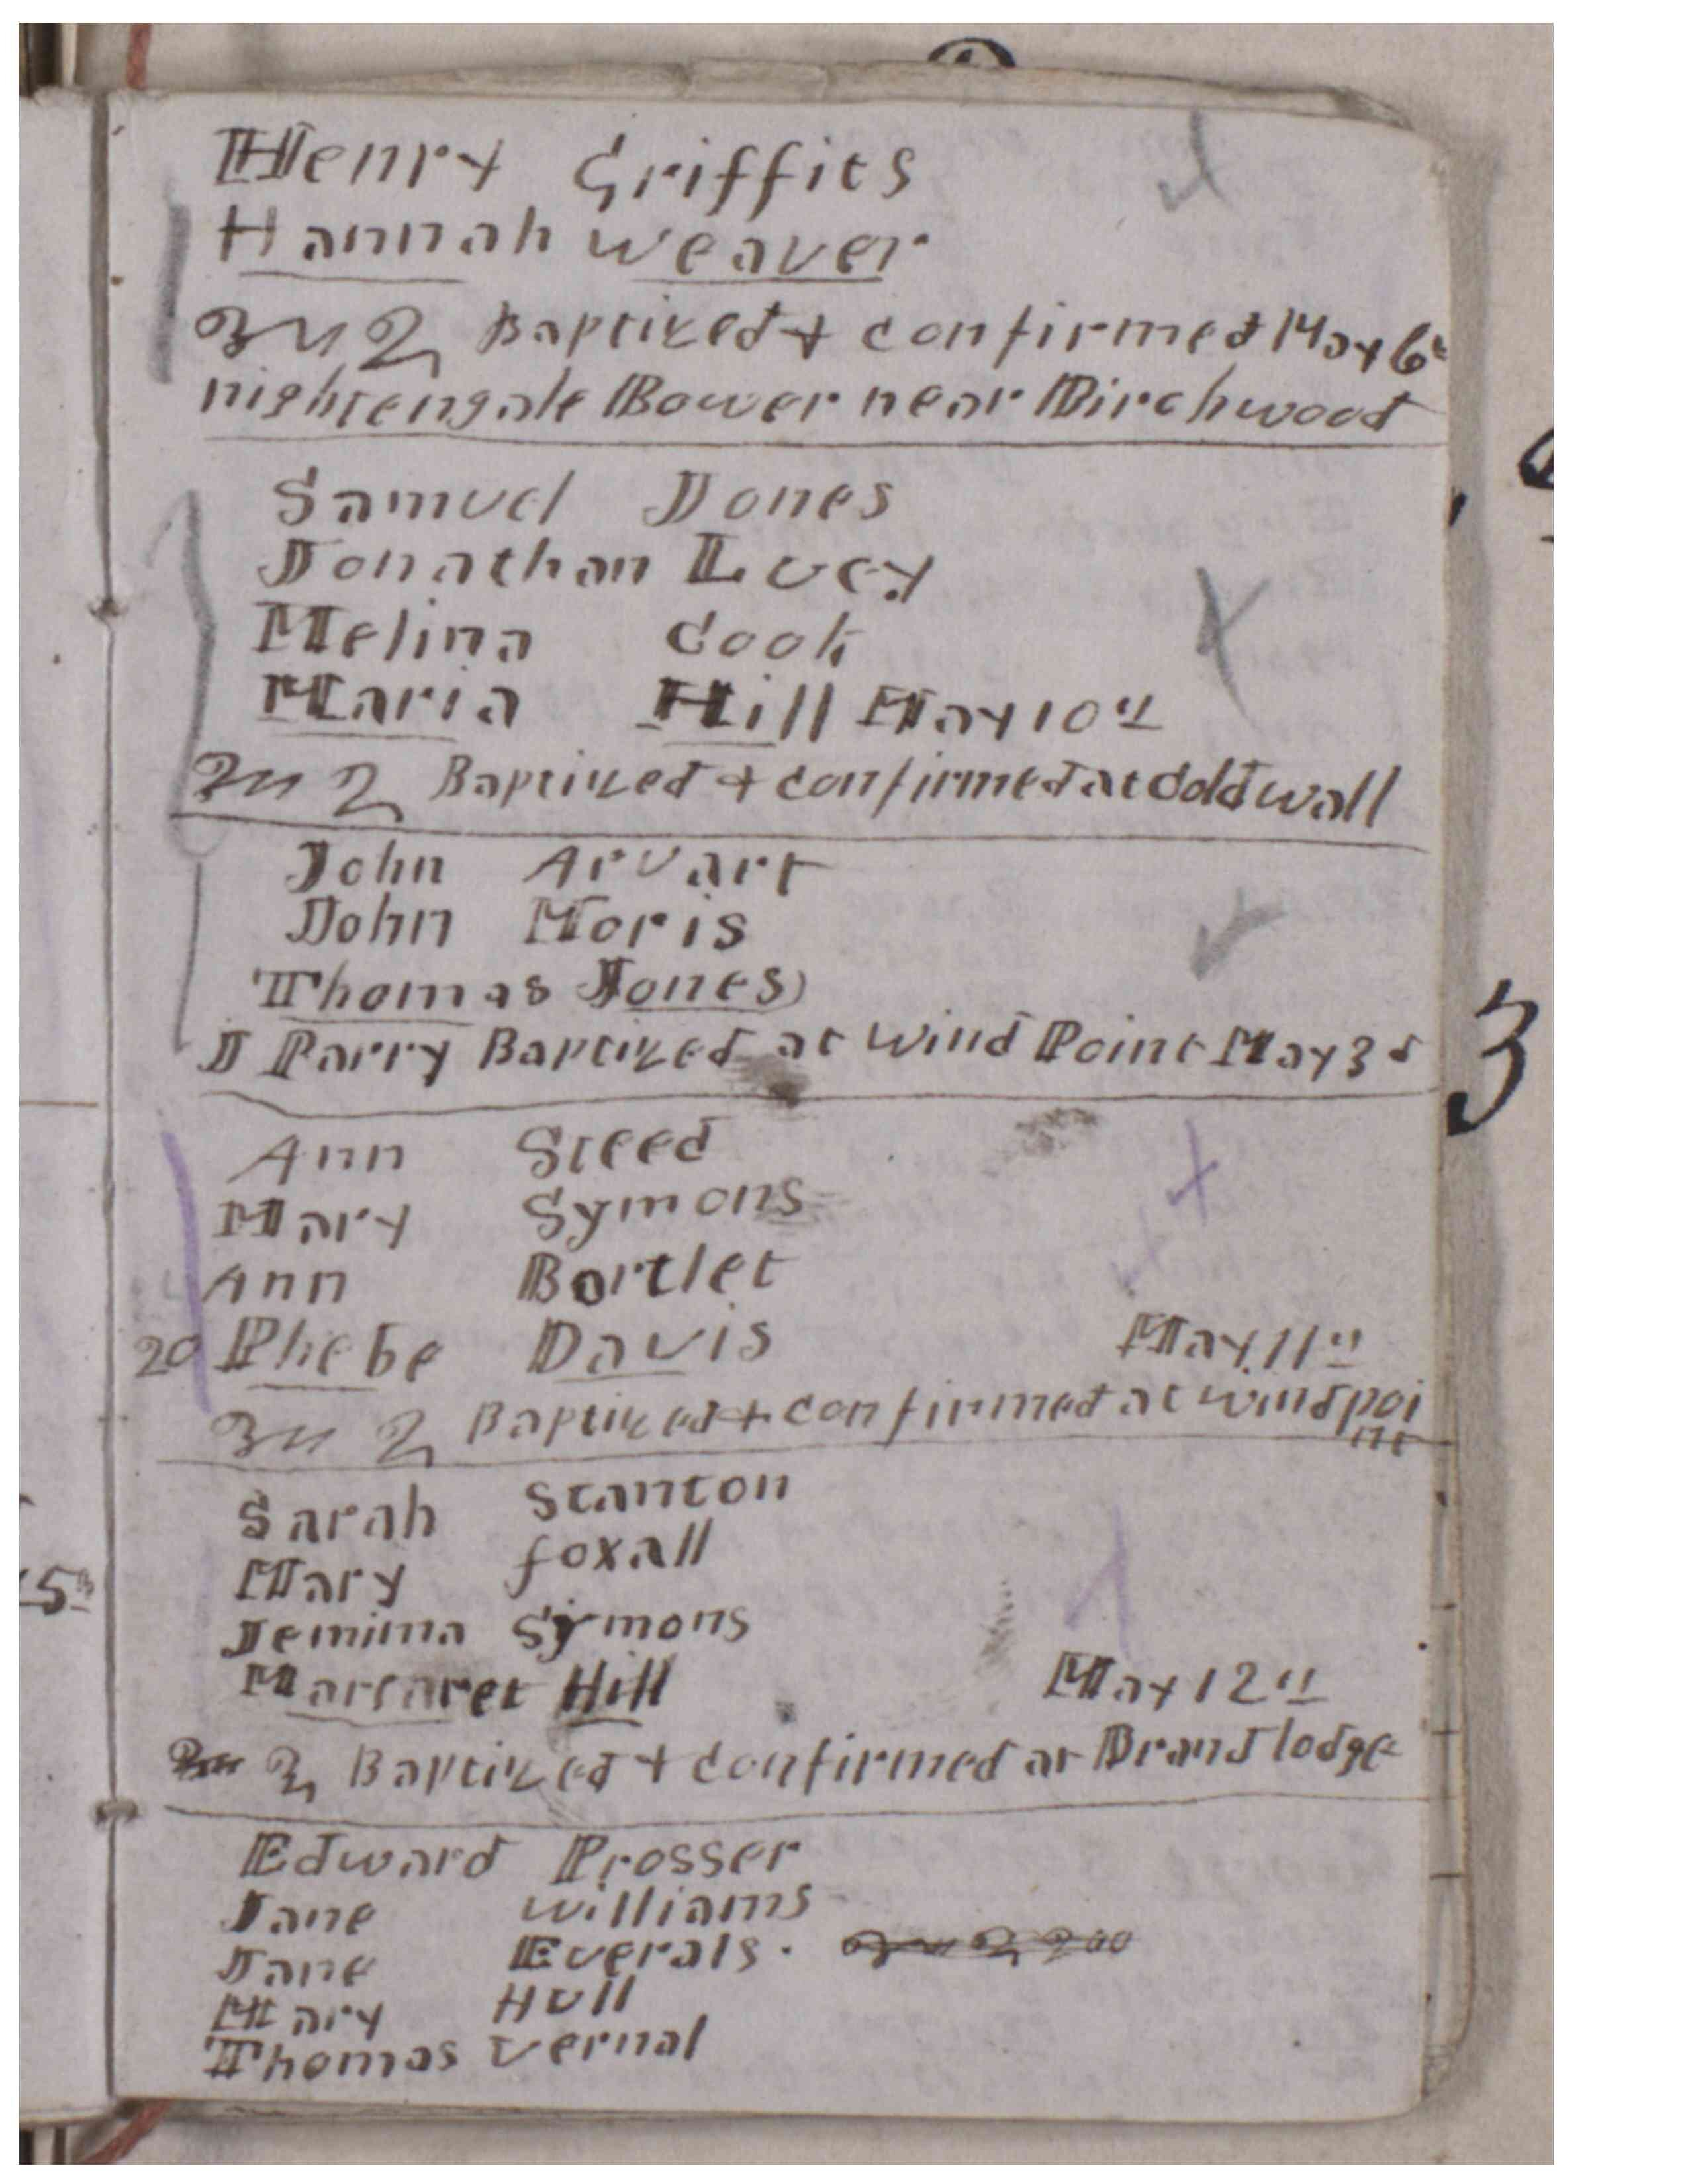 Henry Griffits
Hannah Weaver
Baptized + confirmed May 6th
nightengale Bower near Birchwood
Samuel Jones
Jonathan Lucy
Melina Cook
Maria Hill May 10th
Baptized + confirmed at Coldwall
John Arvart
John Moris
Thomas Jones
J Parry Baptized at Wind Point May 3d
Ann Steed
Mary Symons
Ann Bortlet
20 Phebe Davis May 11th
Baptized + confirmed at windpoi
nt
Sarah Stanton
Mary foxall
Jemima Symons
Margaret Hill May 12th
Baptized + confirmed at Brand lodge
Edward Prosser
Jane williams
Jane Everals.
Mary Hull
Thomas Vernal
3
5th